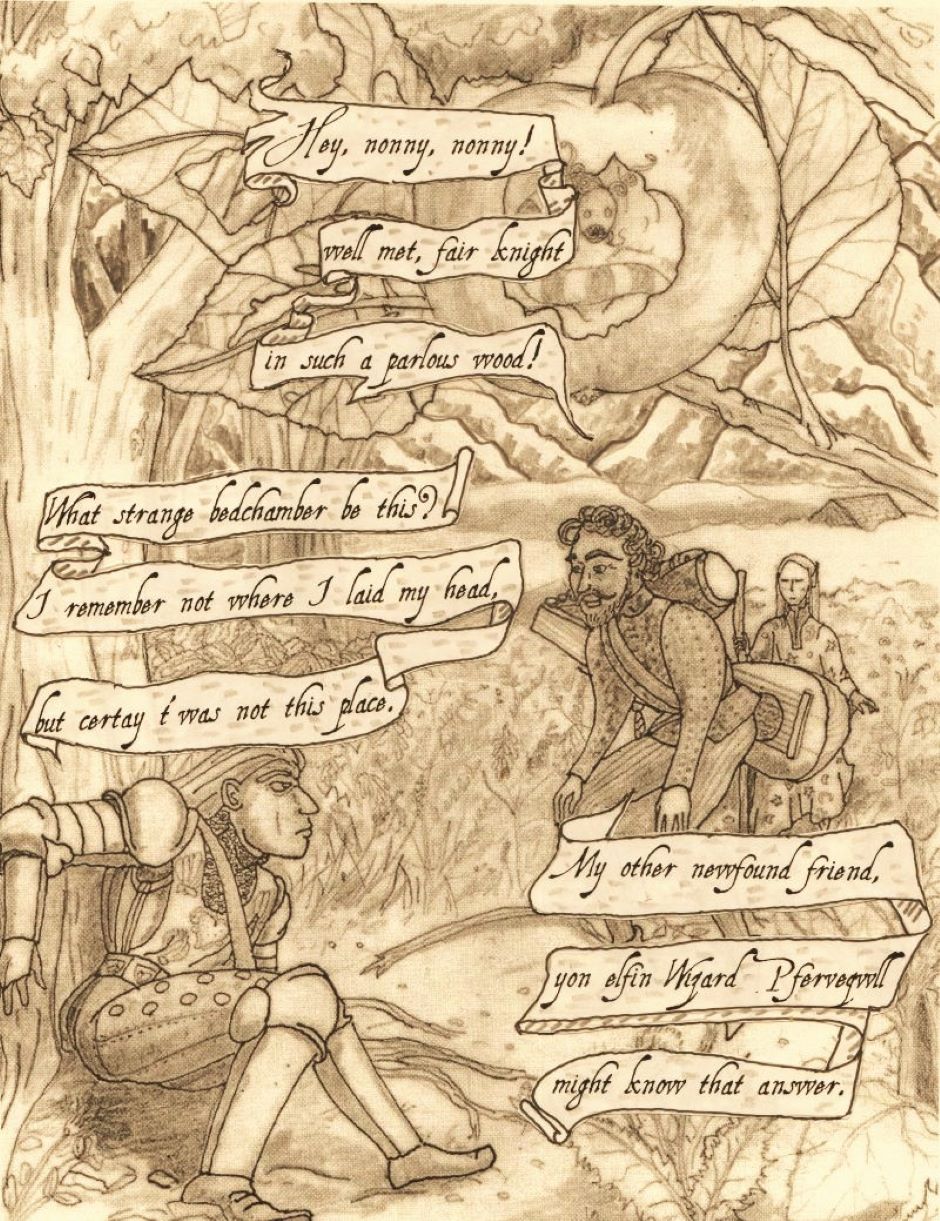 Hey, nonny, nonny!
well met, fair knight
in such a parlous wood!
What strange bedchamber be this?
I remember not where I laid my head,
but certay t'was not this place.
My other newfound friend,
yon elfin Wizard Pferveqwll
might know that answer.